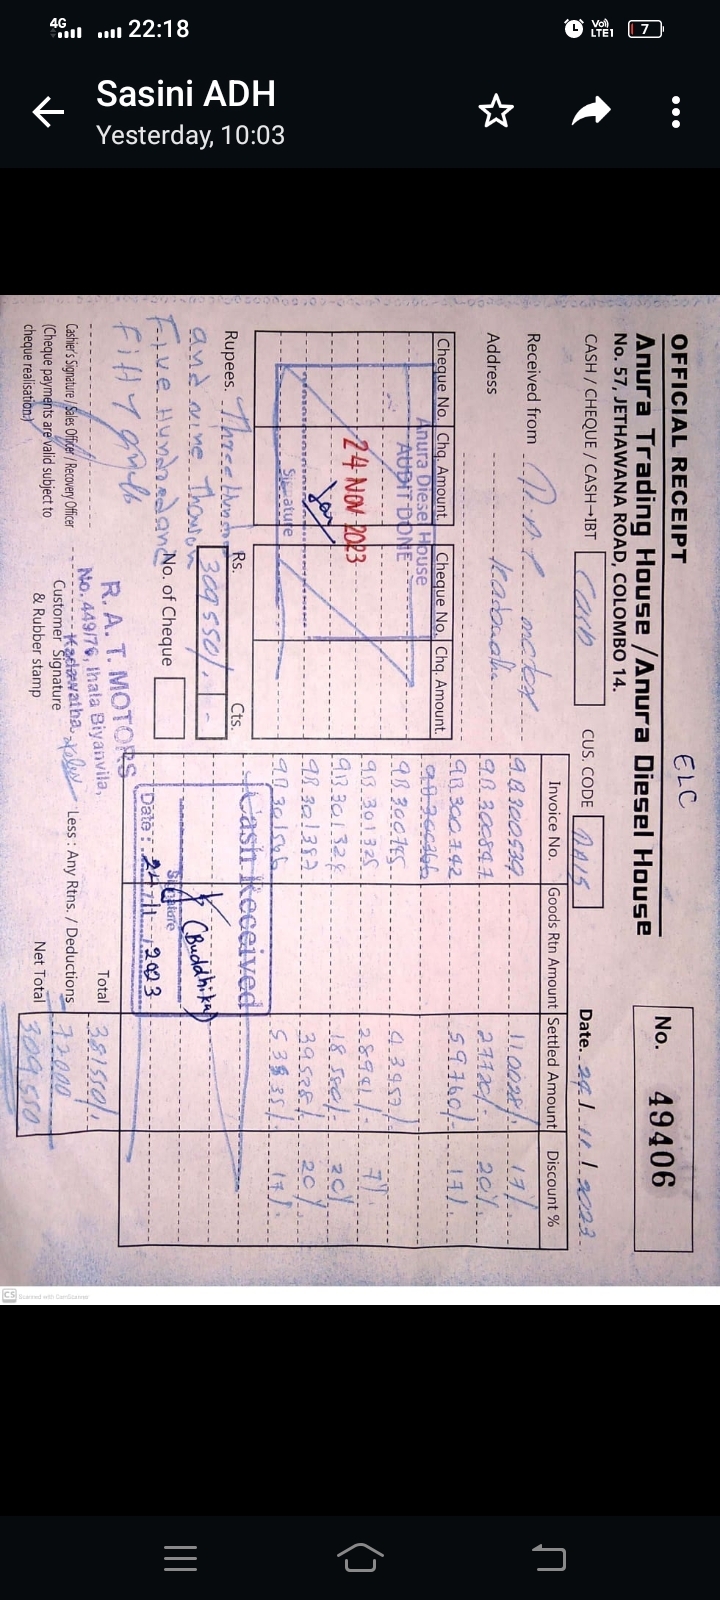 4G 22:18 Vo) LTE1 7
Sasini ADH
Yesterday, 10:03
ELC
OFFICIAL RECEIPT
Anura Trading House /Anura Diesel House
No. 57, JETHAWANA ROAD, COLOMBO 14.
No. 49406
CASH / CHEQUE / CASH→IBT Cash
CUS. CODE
Date. 24 / 11 / 2023
Received from motor
Address
Cheque No. Chq. Amount. Cheque No. Chq. Amount.
Anura Diesel House
AUDIT DONE
24 NOV 2023
Signature
Invoice No. Goods Rtn Amount Settled Amount Discount %
9B300539 17%
9B300891 27720/. 20%
9B300742 59760/. 17%
9B300765
9B301325 28981/. 7%
9B301328 18580/. 20%
9B301387 39528/. 20%
17%
Cash Received
(Buddhika)
Signature
Date : 24/11/2023
Rupees. Three Hundred
and nine Thousand
Five Hundred and
Fifty only
Rs. Cts.
309550/. -
No. of Cheque
R. A. T. MOTORS
No. 449/76, Ihala Biyanvila,
Kadawatha.
Total 381550/.
Less : Any Rtns. / Deductions 72000
Net Total 309550
Cashier's Signature / Sales Officer / Recovery Officer
(Cheque payments are valid subject to
cheque realisation)
Customer Signature
& Rubber stamp
CS Scanned with CamScanner